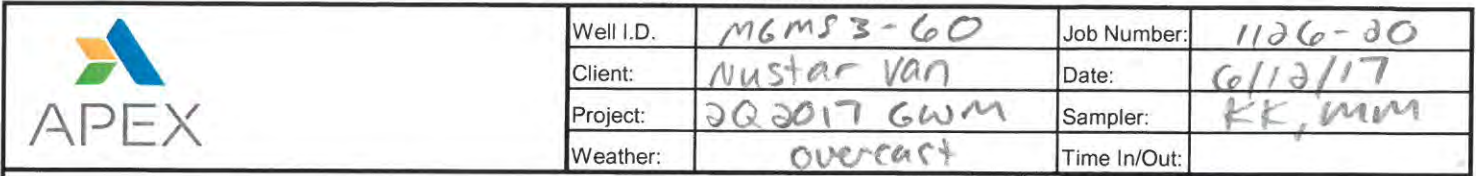 APEX
Well I.D. MGMS3-60 Job Number: 1126-20
Client: Nustar Van Date: 6/12/17
Project: 2Q2017 GWM Sampler: KK, MM
Weather: overcast Time In/Out: